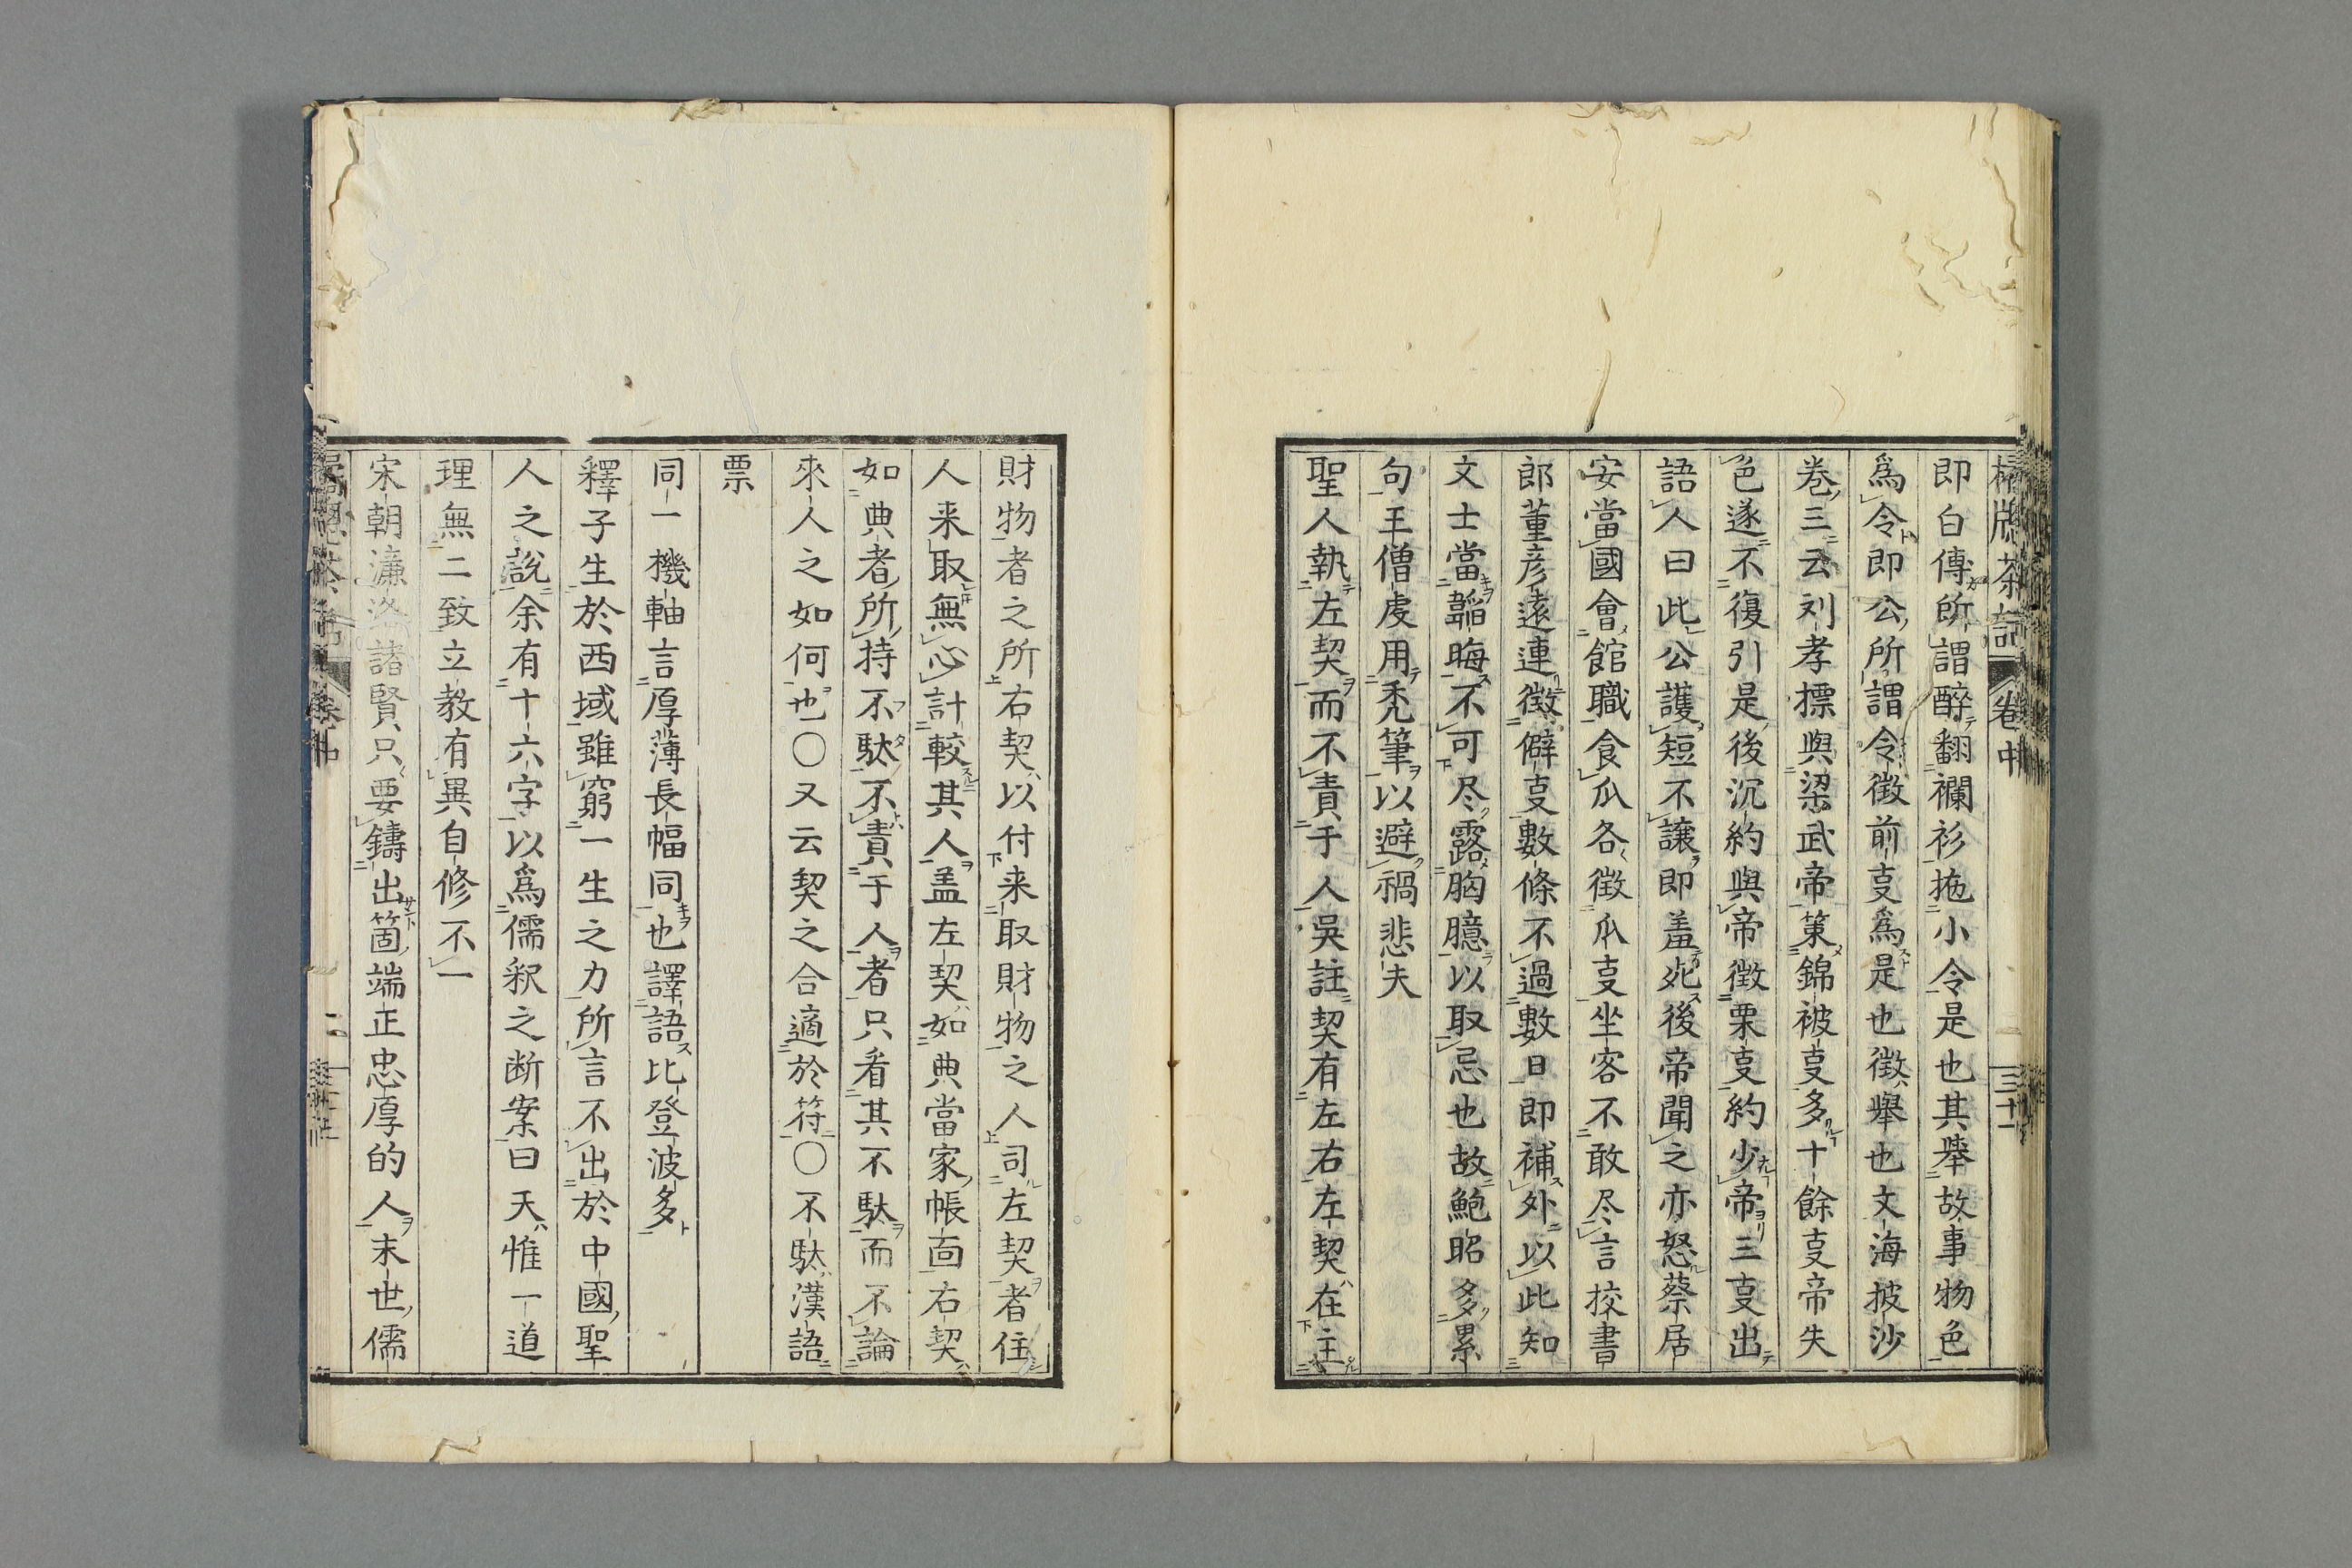 卷中
三十
即白傳所謂醉翻襴衫拖小令是也其擧故事物色
爲令即公所謂令徴前叓爲是也徴擧也文海披沙
卷三云刘孝摽與梁武帝策錦被叓多十餘叓帝失
色遂不復引是後沉約與帝徴栗叓約少帝三叓出
語人曰此公護短不讓即羞死後帝聞之亦怒蔡居
安當國會館職食瓜各徴瓜叓坐客不敢尽言挍書
郎董彦遠連徴僻叓數條不過數日即補外以此知
文士當韜晦不可尽露胸臆以取忌也故鮑昭多累
句王僧虔用禿筆以避禍悲夫
聖人執左契而不責于人吳註契有左右左契在主
財物者之所右契以付来取財物之人司左契者住
人来取無心計較其人盖左契如典當家帳面右契
如典者所持不䭾不責于人者只看其不䭾而不論
來人之如何也〇又云契之合適於符〇不䭾漢語
票
同一機軸言厚薄長幅同也譯語比登波多
釋子生於西域雖窮一生之力所言不出於中國聖
人之説余有十六字以爲儒釈之断案曰天惟一道
理無二致立教有異自修不一
宋朝濂洛諸賢只要鑄出箇端正忠厚的人末世儒